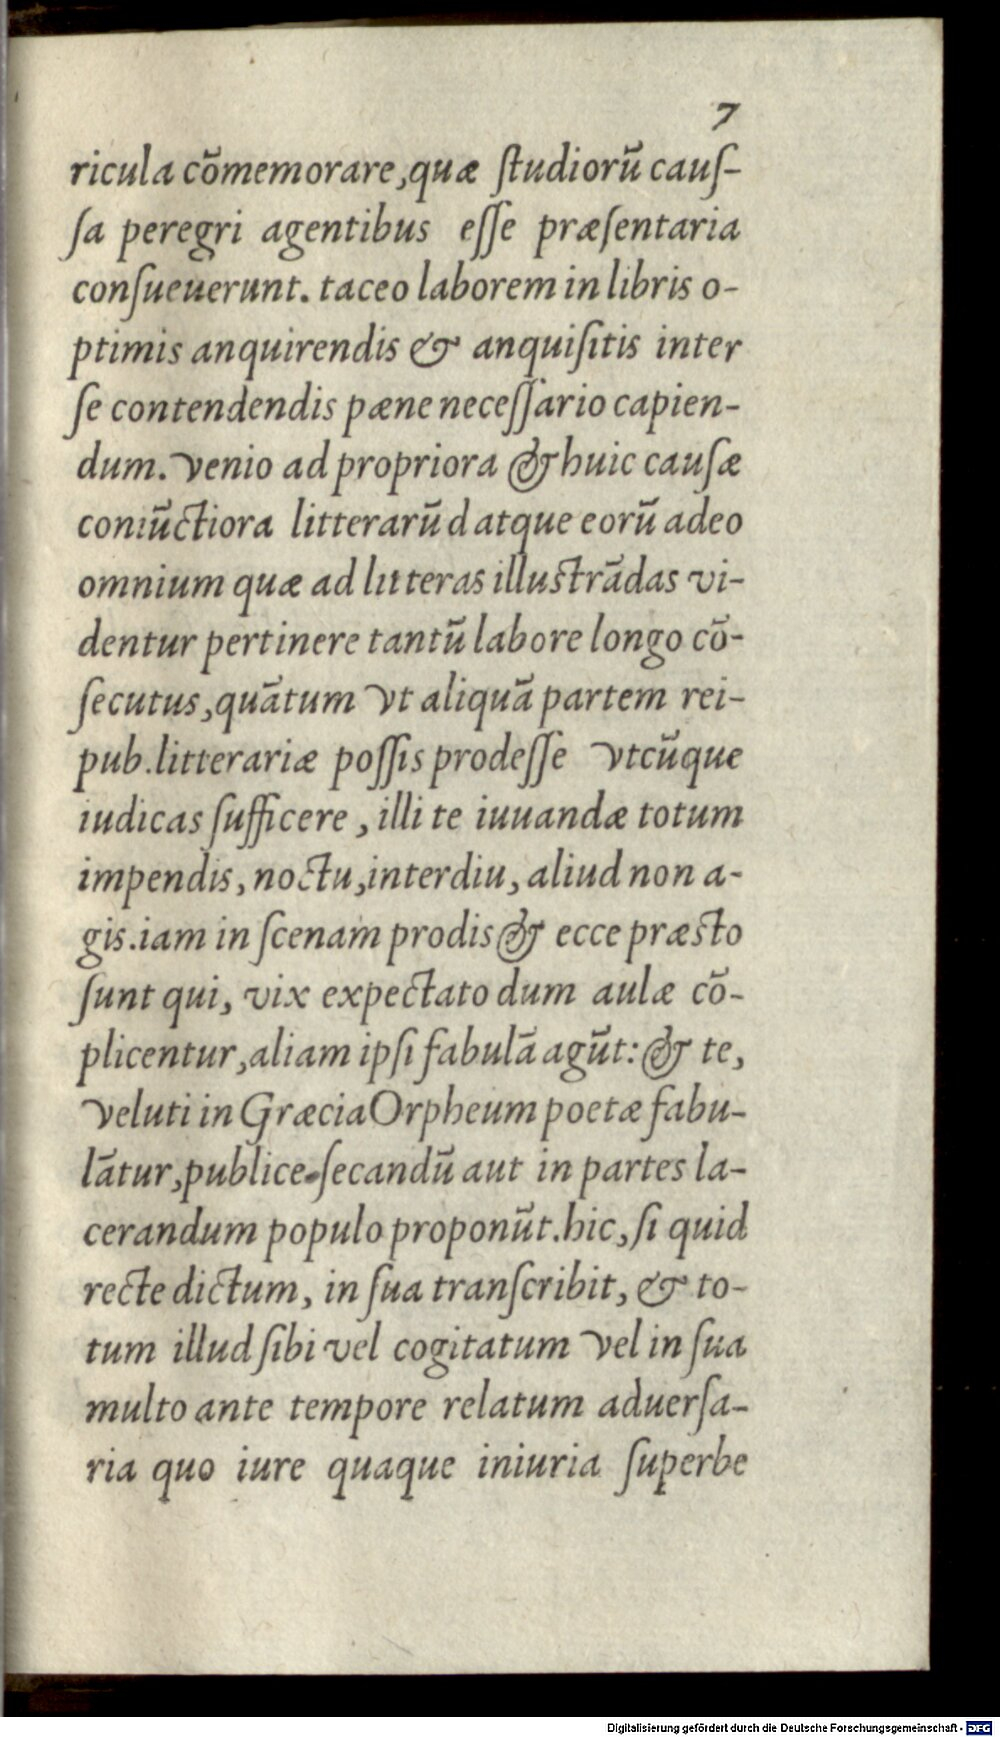 7
ricula cõmemorare,quæ ſtudiorũ cauſ-
ſa peregri agentibus eſſe præſentaria
conſueuerunt. taceo laborem in libris o-
ptimis anquirendis & anquiſitis inter
ſe contendendis pæne neceſſario capien-
dum. venio ad propriora & huic cauſæ
coniũctiora litterarũ d atque eorũ adeo
omnium quæ ad litteras illuſtrãdas vi-
dentur pertinere tantũ labore longo cõ-
ſecutus,quãtum vt aliquã partem rei-
pub.litterariæ poſſis prodeſſe vtcũque
iudicas ſufficere , illi te iuuandæ totum
impendis, noctu,interdiu, aliud non a-
gis.iam in ſcenam prodis & ecce præſto
ſunt qui, vix expectato dum aulæ cõ-
plicentur,aliam ipſi fabulã agũt: & te,
veluti in Græcia Orpheum poetæ fabu-
lãtur,publice ſecandũ aut in partes la-
cerandum populo proponũt.hic, ſi quid
recte dictum, in ſua tranſcribit, & to-
tum illud ſibi vel cogitatum vel in ſua
multo ante tempore relatum aduerſa-
ria quo iure quaque iniuria ſuperbe
Digitalisierung gefördert durch die Deutsche Forschungsgemeinschaft - DFG